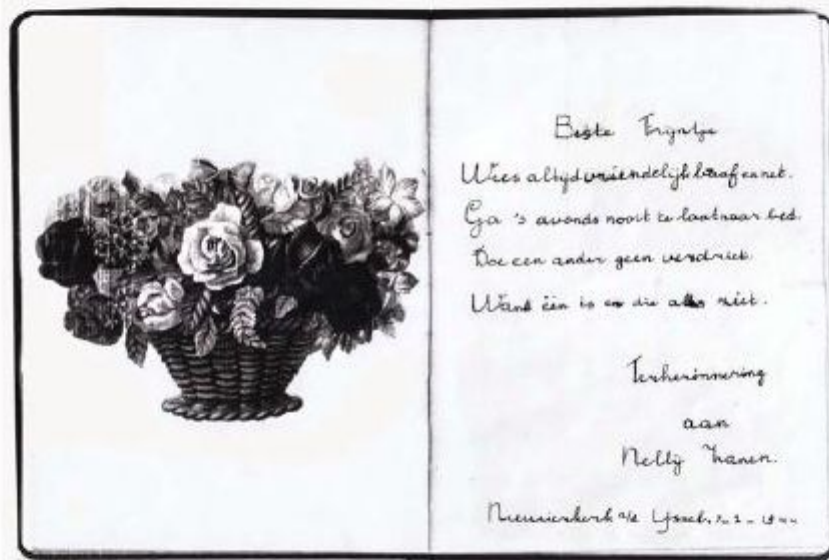 Beste Trijntje
Wees altijd vriendelijk braaf en net.
Ga 's avonds nooit te laat naar bed.
Doe een ander geen verdriet.
Want één is er die alles ziet.
Ter herinnering
aan
Nelly
Nieuwerkerk a/d IJssel.